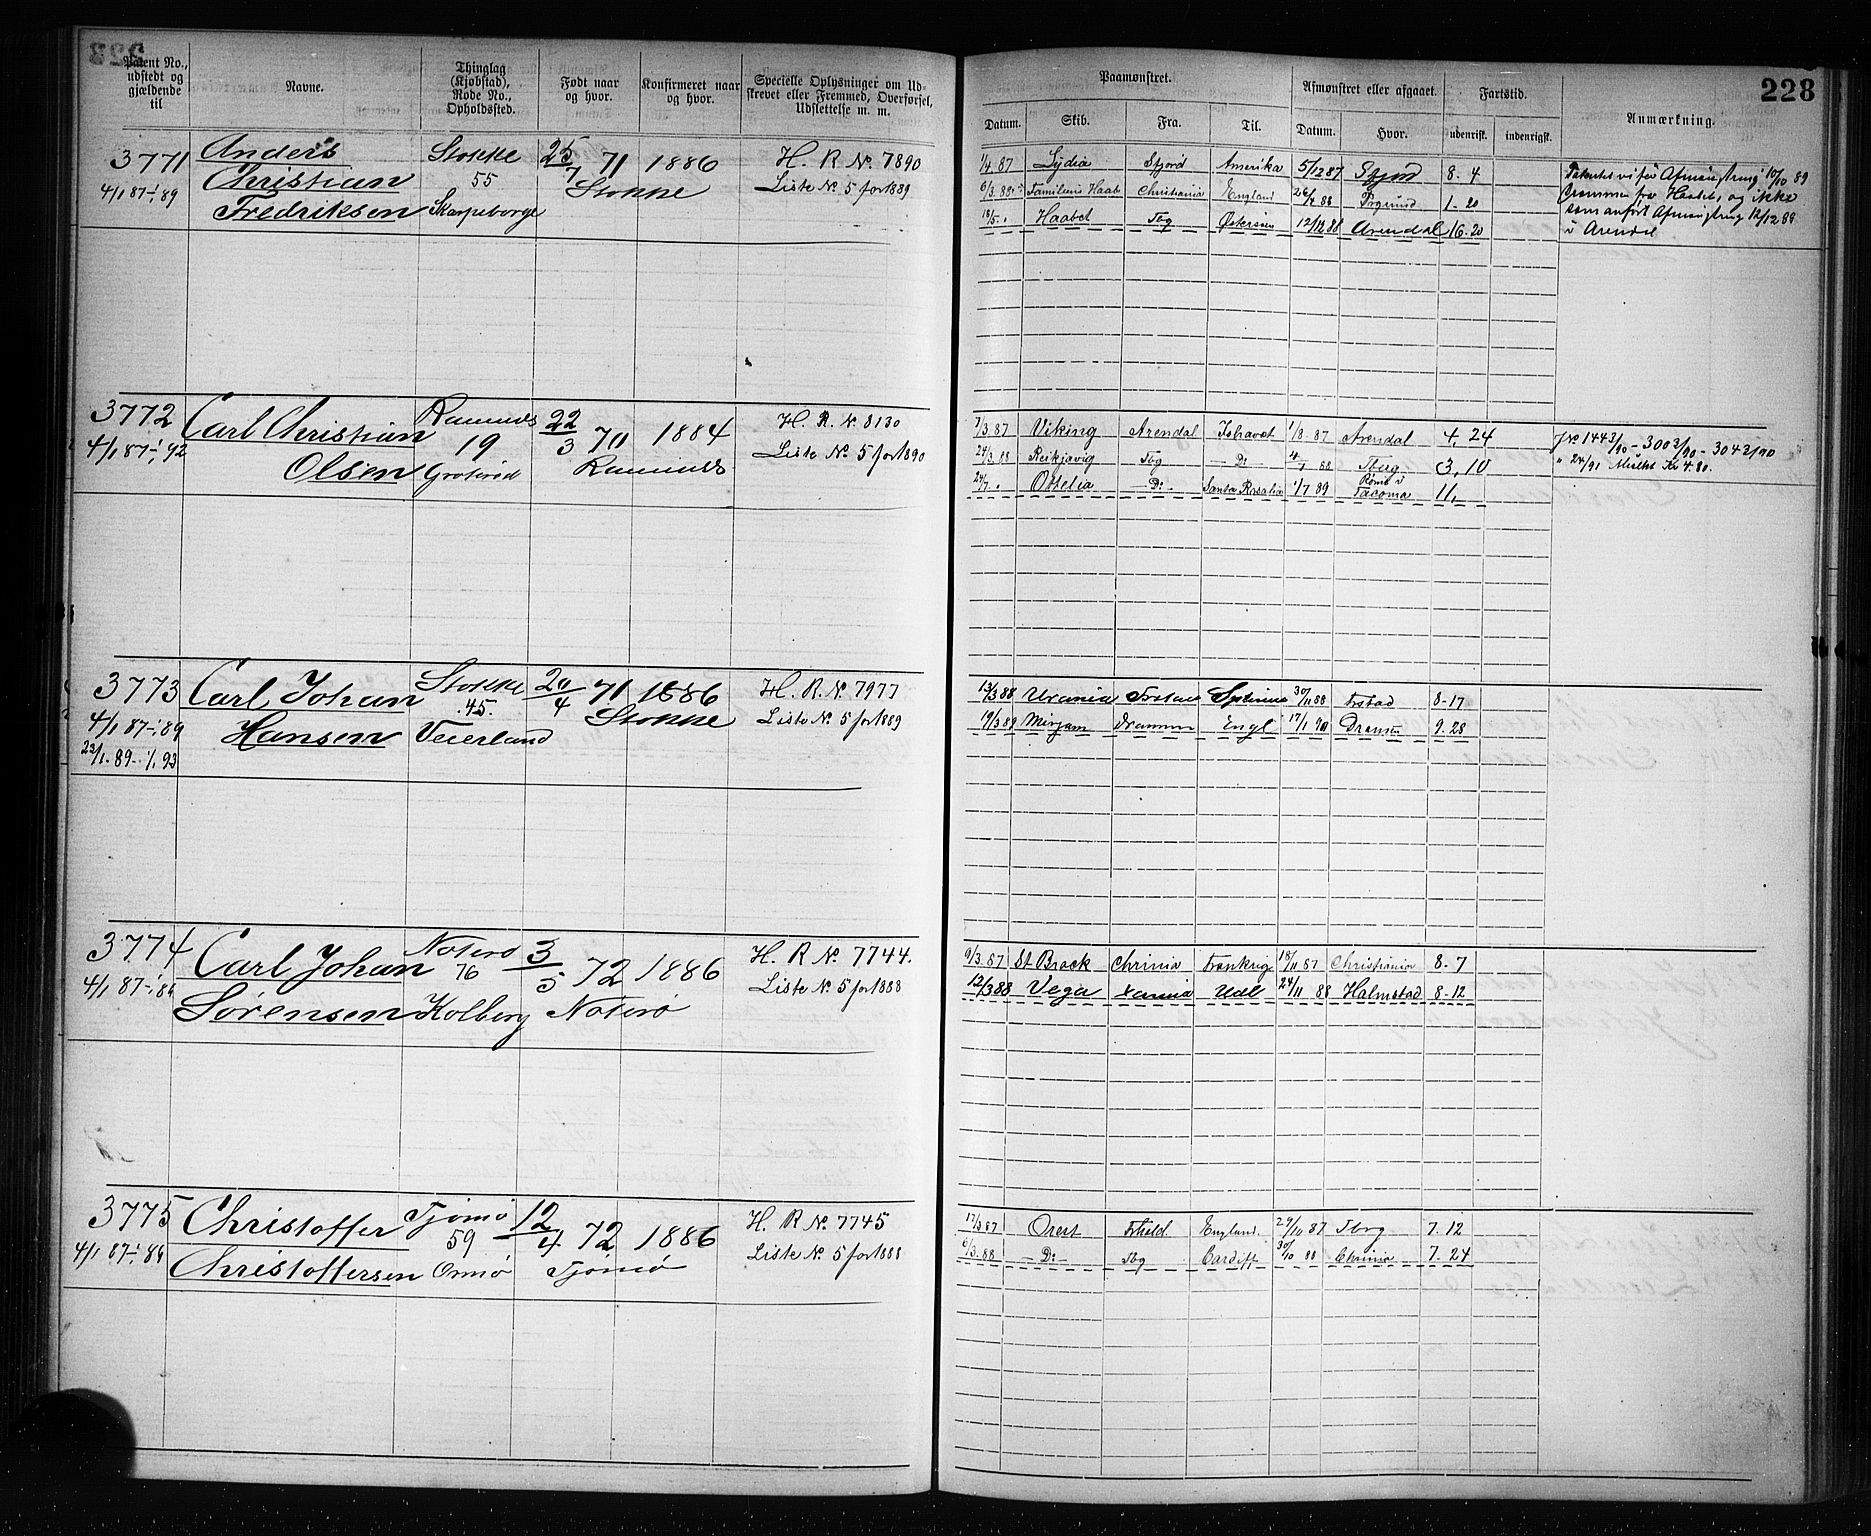 228
Patent No., udstedt og gjældende til
Navne.
Thinglag (Kjøbstad), Rode No., Opholdssted.
Født naar og hvor.
Konfirmeret naar og hvor.
Specielle Oplysninger om Udskrevet eller Fremmed, Overførsel, Udslettelse m. m.
Paamønstret.
Afmønstret eller afgaaet.
Fartstid.
Anmærkning.
Datum. Skib. Fra. Til. Datum. Hvor. udenrigsk. indenrigsk.
3771 Anders Stokke 25/7 71 1886 H. R. No. 7890
Christian 55 Stokke Liste No. 5 for 1889
4/1 87-1/1 89 Fredriksen Skarpeborge
1/4 87 Lydia Sfjord Amerika 5/12 87 Sfjord 8. 4
6/3. 88 Familiens Haab Christiania England 88 1. 20
18/5 " Haabet Tbg Østersøen 12/12 88 Arendal 16. 20
Afmønstring 10/10 89
fra Haabet, og ikke
som anført Afmønstring 12/12 88
i Arendal
3772 Carl Christian Ramnes 22/3 70 1884 H. R. No. 8130
4/1 87-1/1 92 Olsen 19 Ramnes Liste No. 5 for 1890
7/3. 87 Viking Arendal 1/8. 87 Arendal 4, 24
24/3. 88 Reikjavig Tbg D: 88 Tbrg 3, 10
24/7. " Ottelia D: Santa Rosalia 1/7 89 Rømt i Tacoma 11,
J No 1443/90 - 3003/90 - 3042/90
" 24/91 Mulkt Kr 4.80.
3773 Carl Johan Stokke 20/4 71 1886 H. R. No. 7977
4/1 87-1/1 89 Hansen 45. Stokke Liste No. 5 for 1889
23/1. 89-1/1 93 Veierland
13/3 88 Urania 30/11 88 8-17
19/3 89 Mirjam Dramm Engl 17/1 90 Dramm 9. 28
3774 Carl Johan Nøterø 3/5 72 1886 H. R No. 7744.
4/1 87-1/1 Sørensen 76 Nøterø Liste No. 5 for 1888
Kolberg
9/3. 87 Chrinia Frankrige 18/11 87 Christiania 8. 7
12/3 88 Vega Udl 24/11 88 Halmstad 8-12
3775 Christoffer Tjømø 12/4 72 1886 H. R No. 7745
4/1 87-1/1 Christoffersen 59 Tjømø Liste No. 5 for 1888
Ormø
17/3 87 Orest England 29/10 87 Tbrg 7. 12
6/3. 88 D: Tbg Cardiff 30/10 88 Chrinia 7. 24